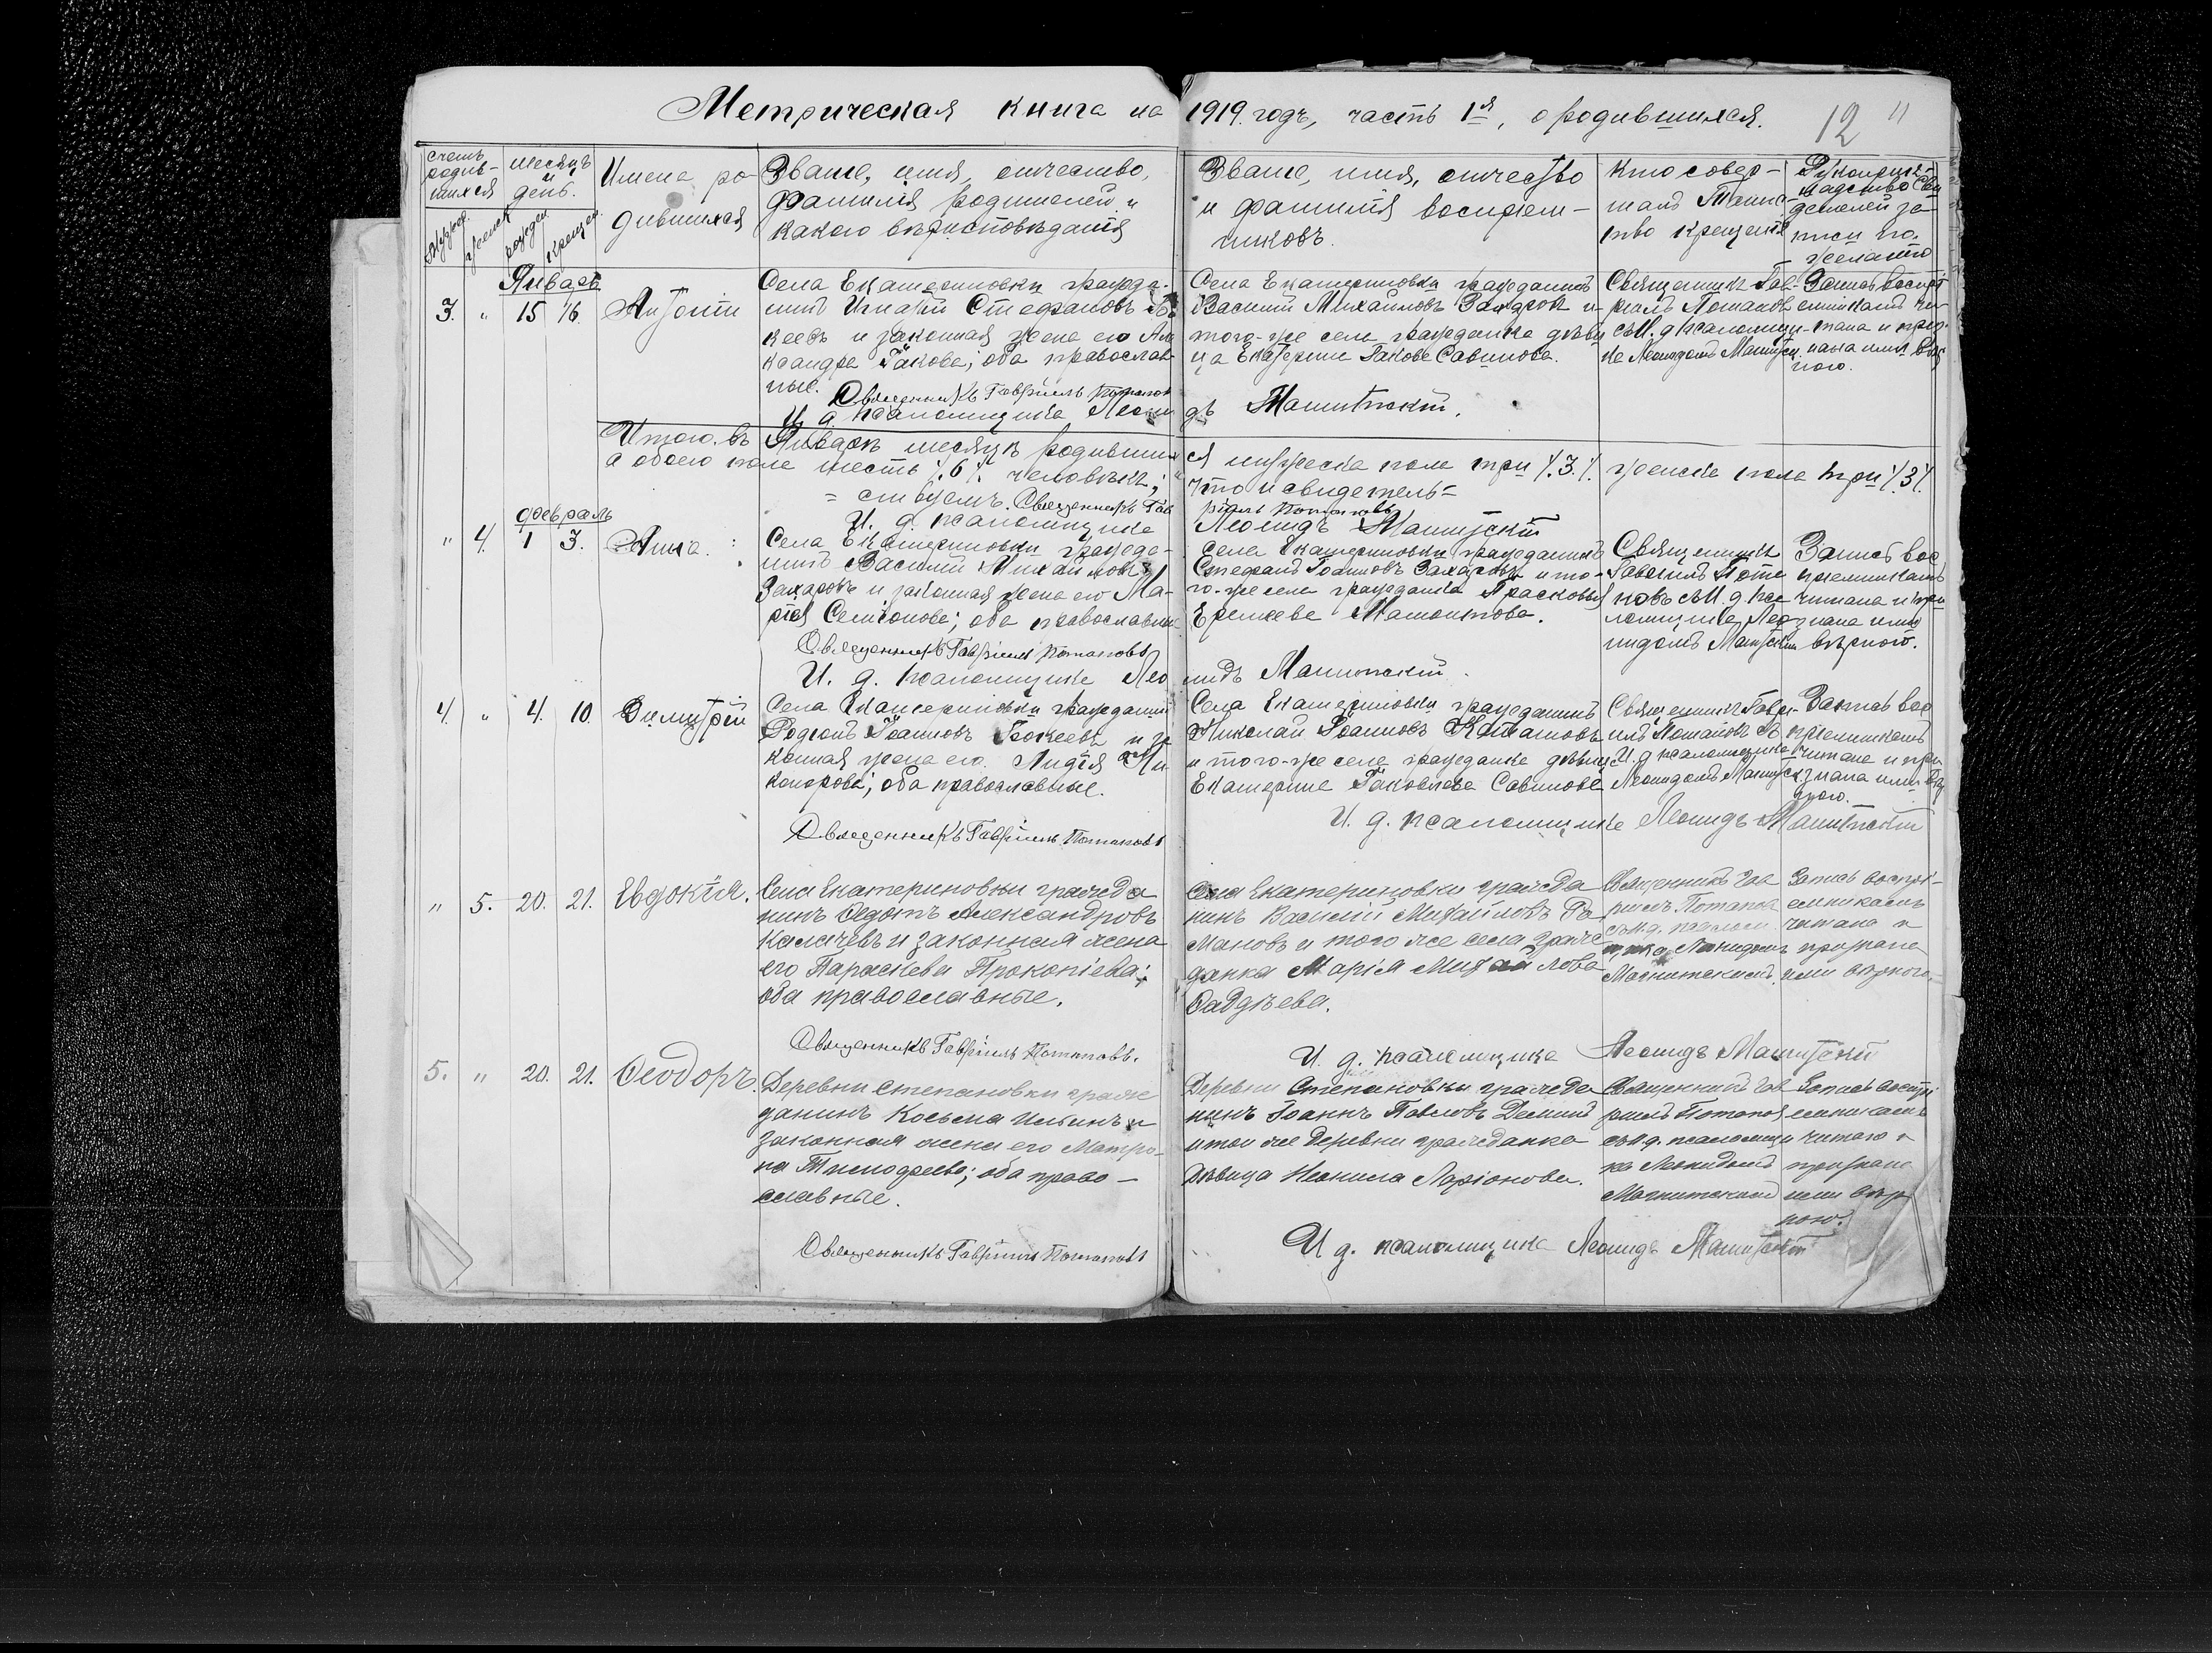 Метрическая книга на 1919 годъ, часть 1я, о родившихся. 12
Счетъ родив-шихся
Месяцъ и день.
Имена ро-дившихся
Званіе, имя, отчество,
фамилія родителей и
какого вѣроисповѣданія
Званіе, имя, отчество
и фамилія воспріем-
никовъ.
Кто совер-
шалъ Таинс-
тво крещенія
Рукоприк-
ладство сви
детелей за-
писи по
желанію
Январь
3. " 15 16. Антоній
Села Екатериновки гражда-
нинъ Игнатій Стефановъ
кеевъ и законная жена его Але
ксандра Іакова; оба православ
ные. Священникъ Гавріилъ Потапов
И. д. псаломщика Леони
Села Екатериновки гражданинъ
Василій Михайловъ Захаровъ и
того-же села гражданка дѣви
ца Екатерина Іакова Савинова.
дъ Магнитскій.
Священникъ Гав-
ріилъ Потаповъ
съ И. д. псаломщи-
ка Леонидомъ Магнитск.
Запись воспрі
емникамъ чи-
тана и приз-
нана ими вѣр
ною.
Итого въ Январѣ месяцѣ родивших ся мужеска пола три /.3./. женска пола три /.3/.
а обоего пола шесть /.6/. человѣкъ; что и свидетель=
= ствуемъ. Священникъ Гав ріилъ Потаповъ
И. д. псаломщика Леонидъ Магнитскій
февраль
" 4. 1 3. Анна.
Села Екатериновки гражда-
нинъ Василій Михайловъ
Захаровъ и законная жена его Ма-
рія Семіонова; оба православные
Священникъ Гавріилъ Потаповъ
И. д. псаломщика Лео
села Екатериновки гражданинъ
Стефанъ Іоанновъ Захаровъ и то-
го-же села гражданка Прасковья
Еремеева Мамонтова.
нидъ Магнитскій.
Священникъ
Гавріилъ Пота
повъ съ И. д. пса
ломщика Лео
нидомъ Магнитскимъ
Запись вос
пріемникамъ
читана и при
знана ими
вѣрною.
4. " 4. 10. Димитрій
Села Екатериновки гражданинъ
Родіонъ Іоанновъ и за
конная жена его Лидія Ни
конорова; оба православные.
Священникъ Гавріилъ Потаповъ
Села Екатериновки гражданинъ
Николай Іоанновъ
и того-же села гражданка дѣвица
Екатерина Іаковлева Савинова
Священникъ Гаврі-
илъ Потаповъ съ
И. д. псаломщика
Леонидомъ Магнитск
Запись вос
пріемникамъ
читана и при
знана ими вѣр
ною.
И. д. псаломщика Леонидъ Магнитскій
" 5. 20. 21. Евдокія.
Села Екатериновки гражда
нинъ Федотъ Александровъ
Калачевъ и законная жена
его Параскева Прокопіева;
оба православные.
Священникъ Гавріилъ Потаповъ.
Села Екатериновки гражда
нинъ Василій Михайловъ Ра
мановъ и того же села граж
данка Марія Михайлова
Фаддѣева.
Священникъ Гав
ріилъ Потапов
съ И.д. псалом
щика Леонидомъ
Магнитскимъ.
Запись воспрі-
емникамъ
читана и
признана
ими вѣрною.
И. д. псаломщика Леонидъ Магнитскій
5. " 20. 21. Феодоръ.
Деревни Степановки граж
данинъ Косьма Ильинъ и
законная жена его Матро-
на Тимофеева; оба право-
славные.
Священникъ Гавріилъ Потаповъ
Деревни Степановки гражда
нинъ Іоаннъ Павловъ Деминъ
и той же деревни гражданка
дѣвица Неонила Ларіонова.
Священникъ Гав
ріилъ Потапов
съ И.д. псаломщи
ка Леонидомъ
Магнитскимъ
Запись воспрі
емникамъ
читана и
признана
ими вѣр
ною.
И д. псаломщика Леонидъ Магнитскій